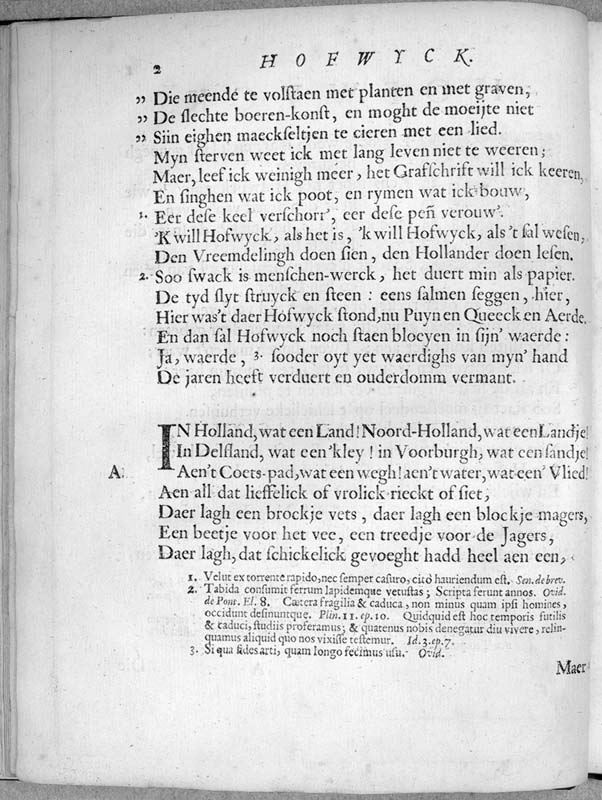 2
HOFWYCK.
„ Die meende te volstaen met planten en met graven,
„ De slechte boeren-konst, en moght de moeijte niet
„ Siin eighen maeckseltjen te cieren met een lied.
Myn sterven weet ick met lang leven niet te weeren;
Maer, leef ick weinigh meer, het Grafschrift will ick keeren,
En singhen wat ick poot, en rymen wat ick bouw,
1. Eer dese keel verschorr', eer dese peñ verouw'.
'K will Hofwyck, als het is, 'k will Hofwyck, als 't sal wesen,
Den Vreemdelingh doen sien, den Hollander doen lesen.
2. Soo swack is menschen-werck, het duert min als papier.
De tyd slyt struyck en steen : eens salmen seggen, hier,
Hier was't daer Hofwyck stond, nu Puyn en Queeck en Aerde.
En dan sal Hofwyck noch staen bloeyen in sijn' waerde:
Ja, waerde, 3. sooder oyt yet waerdighs van myn' hand
De jaren heeft verduert en ouderdomm vermant.
IN Holland, wat een Land! Noord-Holland, wat een Landje!
In Delfland, wat een 'kley! in Voorburgh, wat een sandje!
A. Aen't Coets-pad, wat een wegh! aen't water, wat een' Vlied!
Aen all dat lieffelick of vrolick rieckt of siet,
Daer lagh een brockje vets, daer lagh een blockje magers,
Een beetje voor het vee, een treedje voor de Jagers,
Daer lagh, dat schickelick gevoeght hadd heel aen een,
1. Velut ex torrente rapido, nec semper casuro, citò hauriendum est. Sen. de brev.
2. Tabida consumit ferrum lapidemque vetustas; Scripta ferunt annos. Ovid.
de Pont. El. 8. Cætera fragilia & caduca, non minus quam ipsi homines,
occidunt desinuntque. Plin. 11. ep. 10. Quidquid est hoc temporis futilis
& caduci, studiis proferamus; & quatenus nobis denegatur diu vivere, relin-
quamus aliquid quo nos vixisse testemur. Id. 3. ep. 7.
3. Si qua fides arti, quam longo fecimus usu. Ovid.
Maer